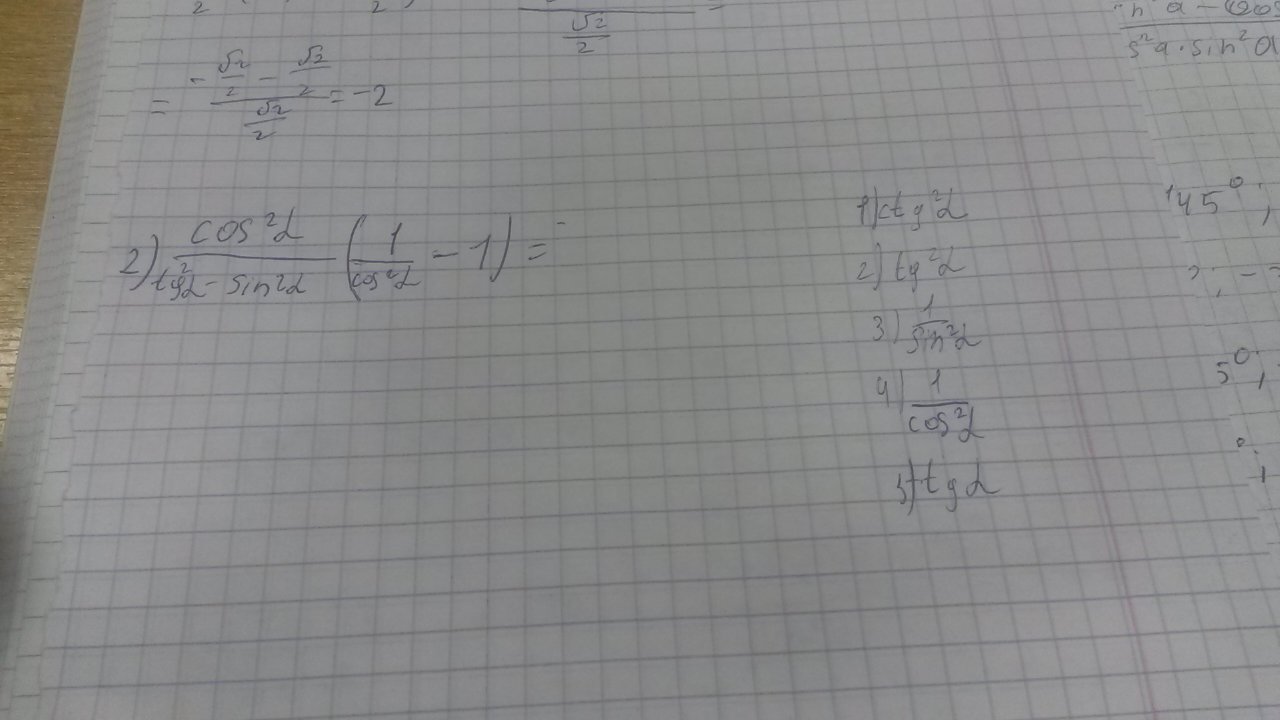 = (-√2/2 - √2/2)/(√2/2) = -2
2) cos²α/(tg²α - sin²α) (1/cos²α - 1) =
1) ctg²α
2) tg²α
3) 1/sin²α
4) 1/cos²α
5) tgα
145°;
5°,